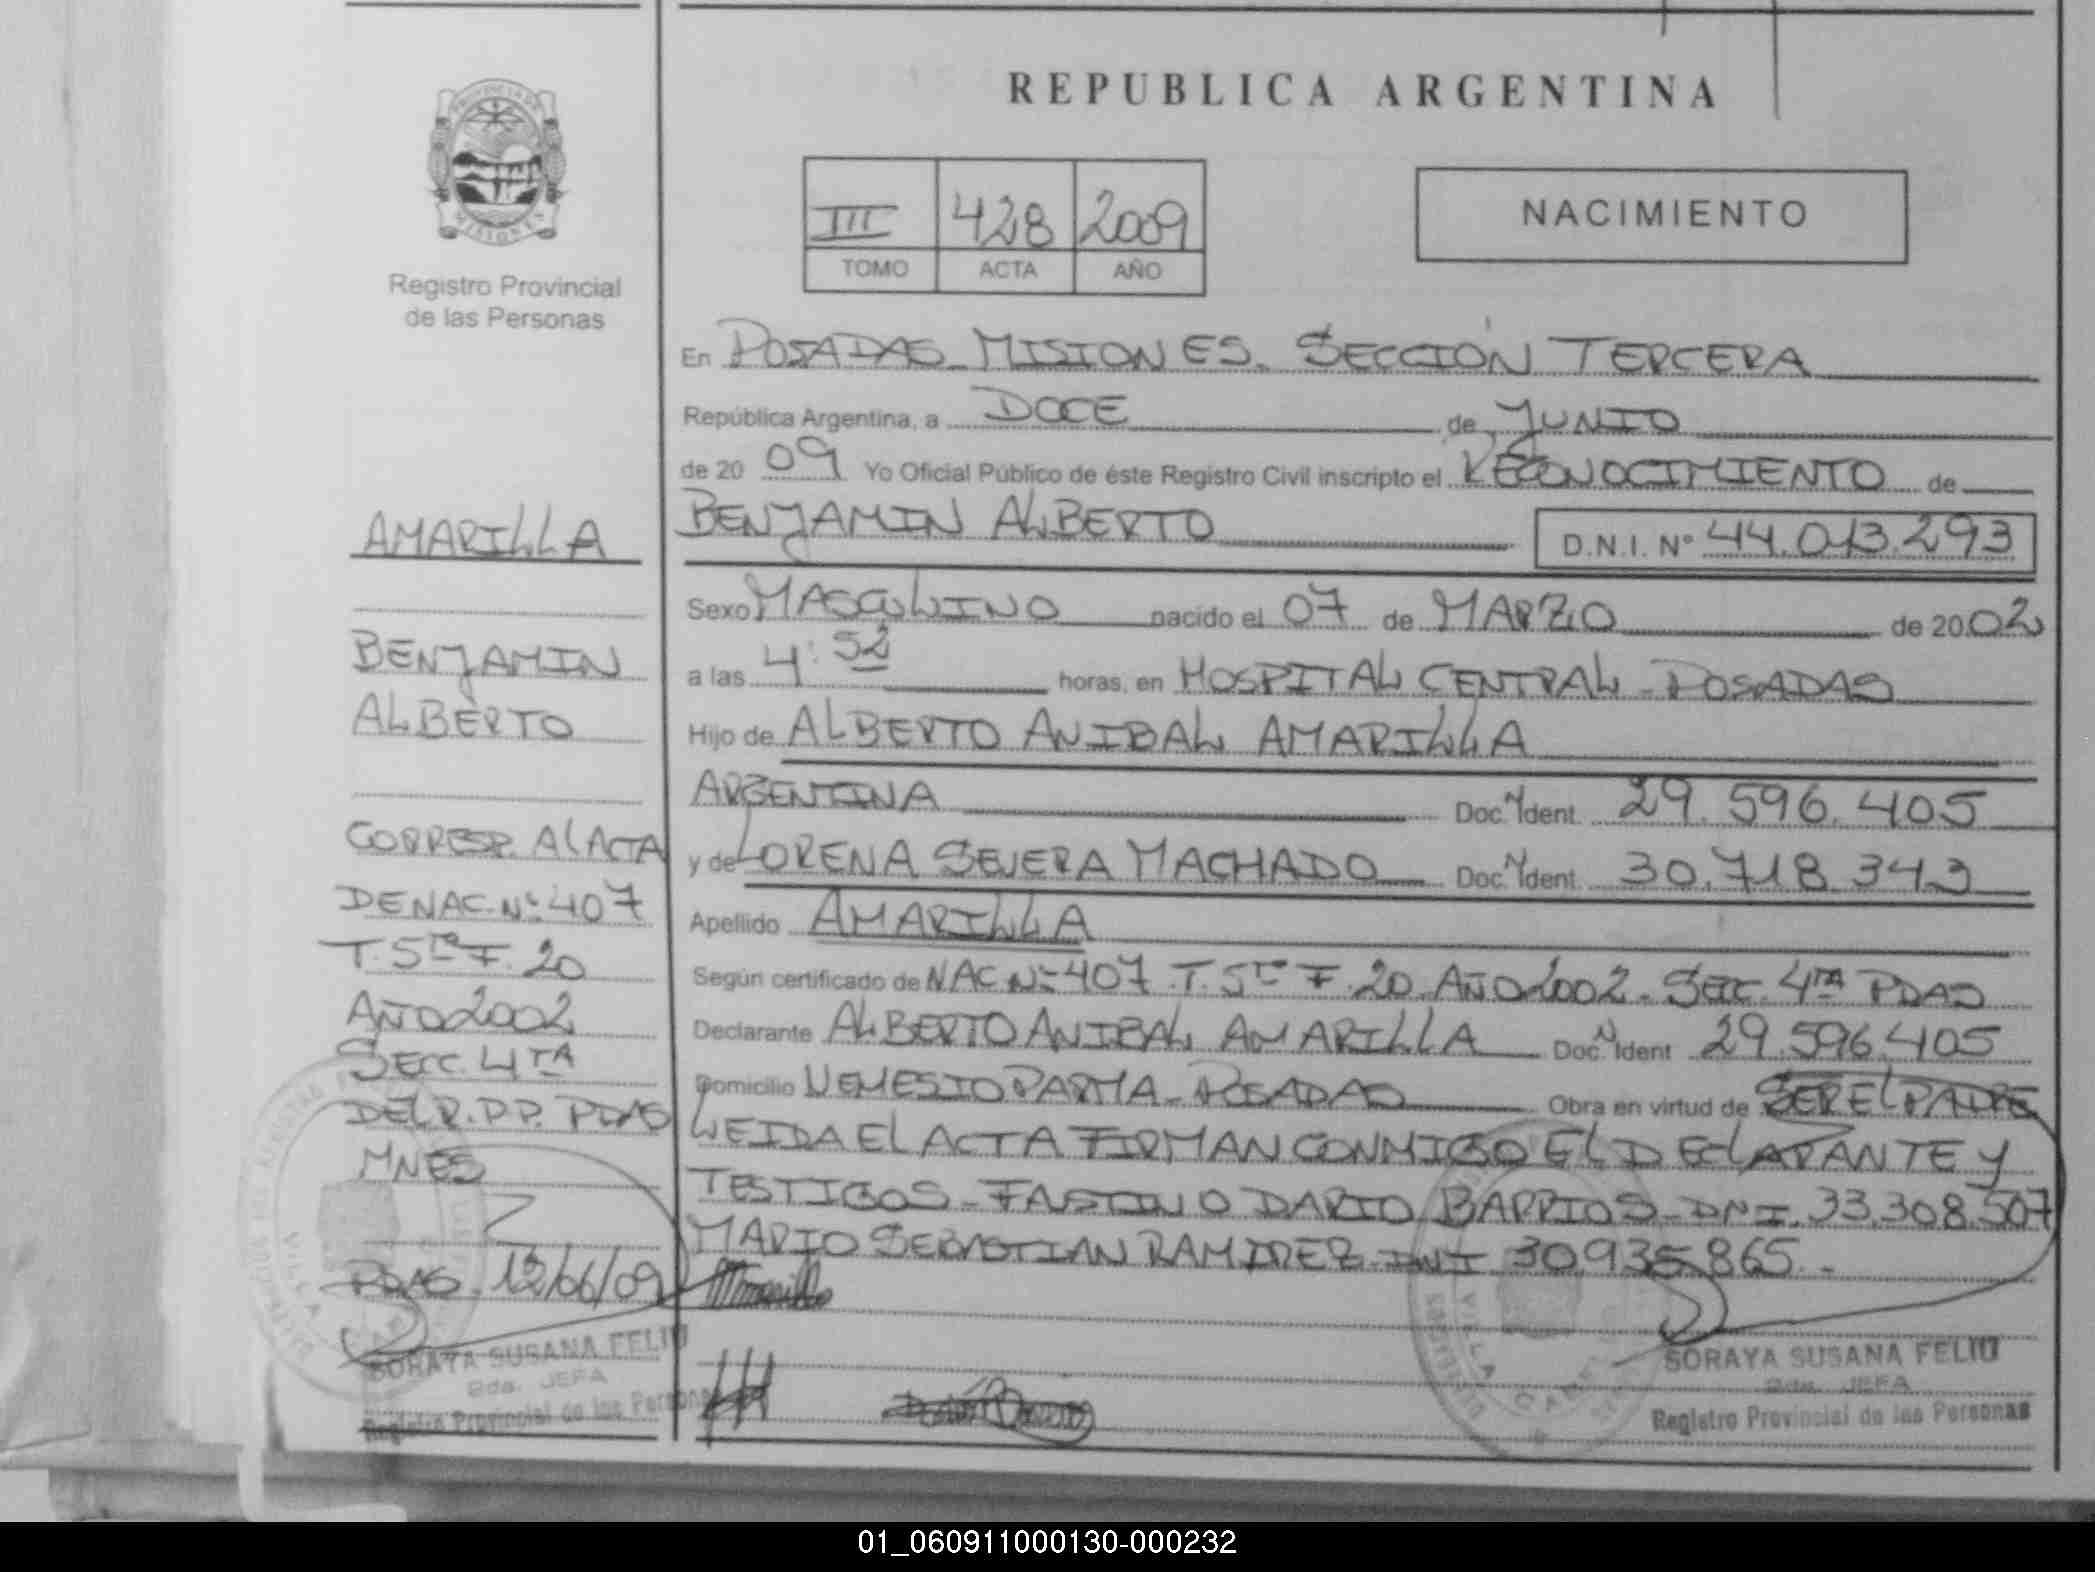 REPUBLICA ARGENTINA
PROVINCIA DE
MISIONES
Registro Provincial
de las Personas
III 428 2009
TOMO ACTA AÑO
NACIMIENTO
En POSADAS - MISIONES. SECCIÓN TERCERA
República Argentina, a DOCE de JUNIO
de 20 09 Yo Oficial Público de éste Registro Civil inscripto el RECONOCIMIENTO de
BENJAMIN ALBERTO D.N.I. Nº 44.013.293
Sexo MASCULINO nacido el 07 de MARZO de 20 02
a las 4:52 horas, en HOSPITAL CENTRAL - POSADAS
Hijo de ALBERTO ANIBAL AMARILLA
ARGENTINA Doc. N Ident. 29.596.405
y de LORENA MACHADO Doc. N Ident. 30.718.343
Apellido AMARILLA
Según certificado de NAC Nº 407 T. 5to F. 20 AÑO 2002 - SEC. 4TA PDAS
Declarante ALBERTO ANIBAL AMARILLA Doc. N Ident 29.596.405
Domicilio NEMESIO PARMA - POSADAS Obra en virtud de SER EL PADRE
LEIDA EL ACTA FIRMAN CONMIGO EL DECLARANTE Y
TESTIGOS - DARIO BARRIOS - DNI. 33.308.507
MARIO SEBASTIAN RAMIREZ - DNI 30.935.865. -
AMARILLA
BENJAMIN
ALBERTO
CORRESP. AL ACTA
DE NAC. Nº 407
T. 5to F. 20
AÑO 2002
SECC. 4TA
DEL R.P.P. PDAS
MNES
PDAS. 12/06/09
SORAYA SUSANA FELIU
Bda. JEFA
Registro Provincial de las Personas
SORAYA SUSANA FELIU
Bda. JEFA
Registro Provincial de las Personas
01_060911000130-000232